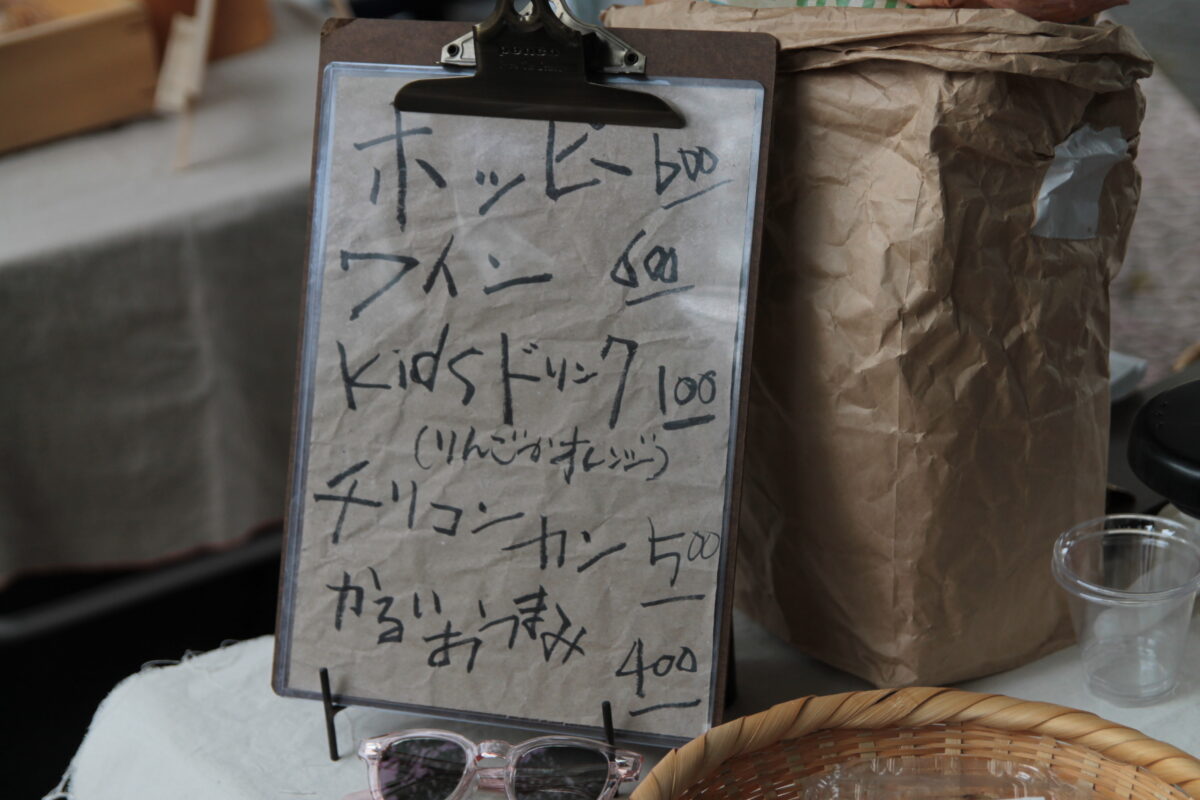 penco
ホッピー 600
ワイン 600
Kidsドリンク 100
(りんごかオレンジ)
チリコンカン 500
かるいおつまみ 400